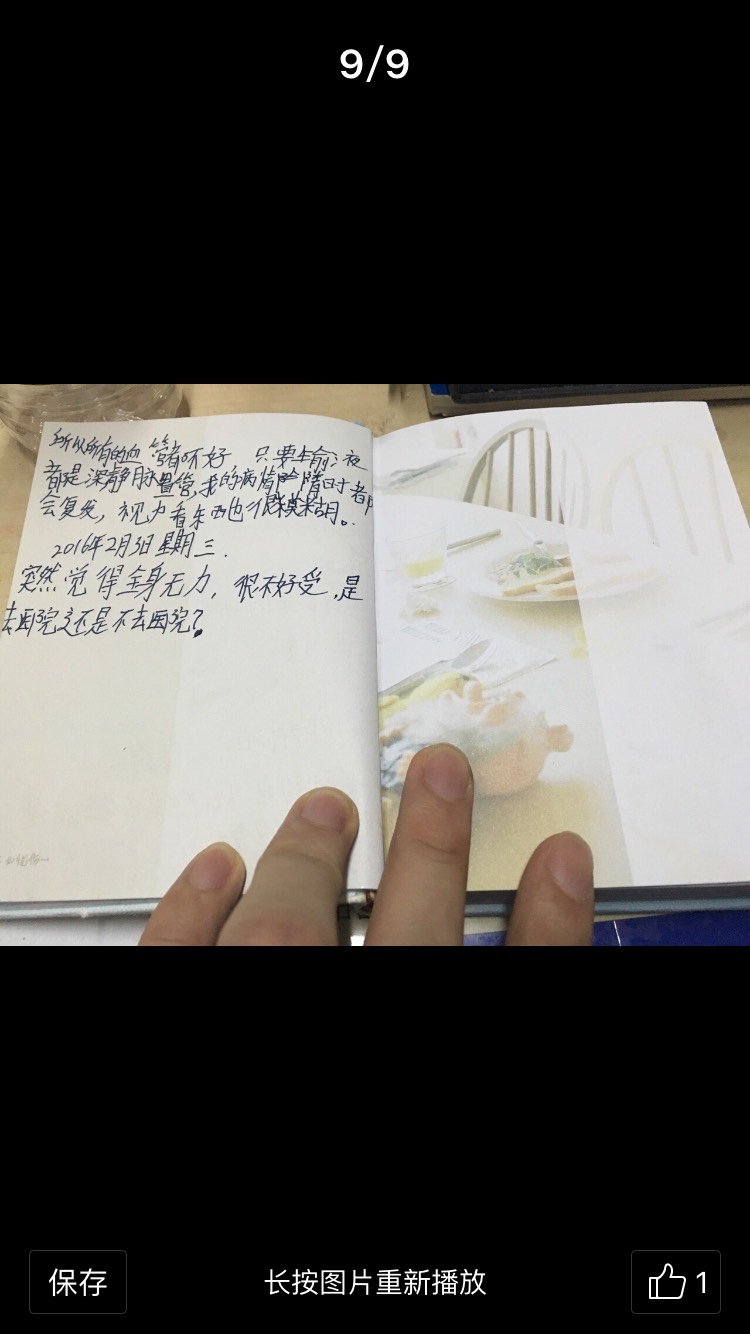 9/9
所以所有的血管都不好 只要输液
都是深静脉置管,我的病情会随时都
会复发,视力看东西也很模糊。
2016年2月3日 星期三.
突然觉得全身无力,很不好受,是
去医院还是不去医院?
保存
长按图片重新播放
1